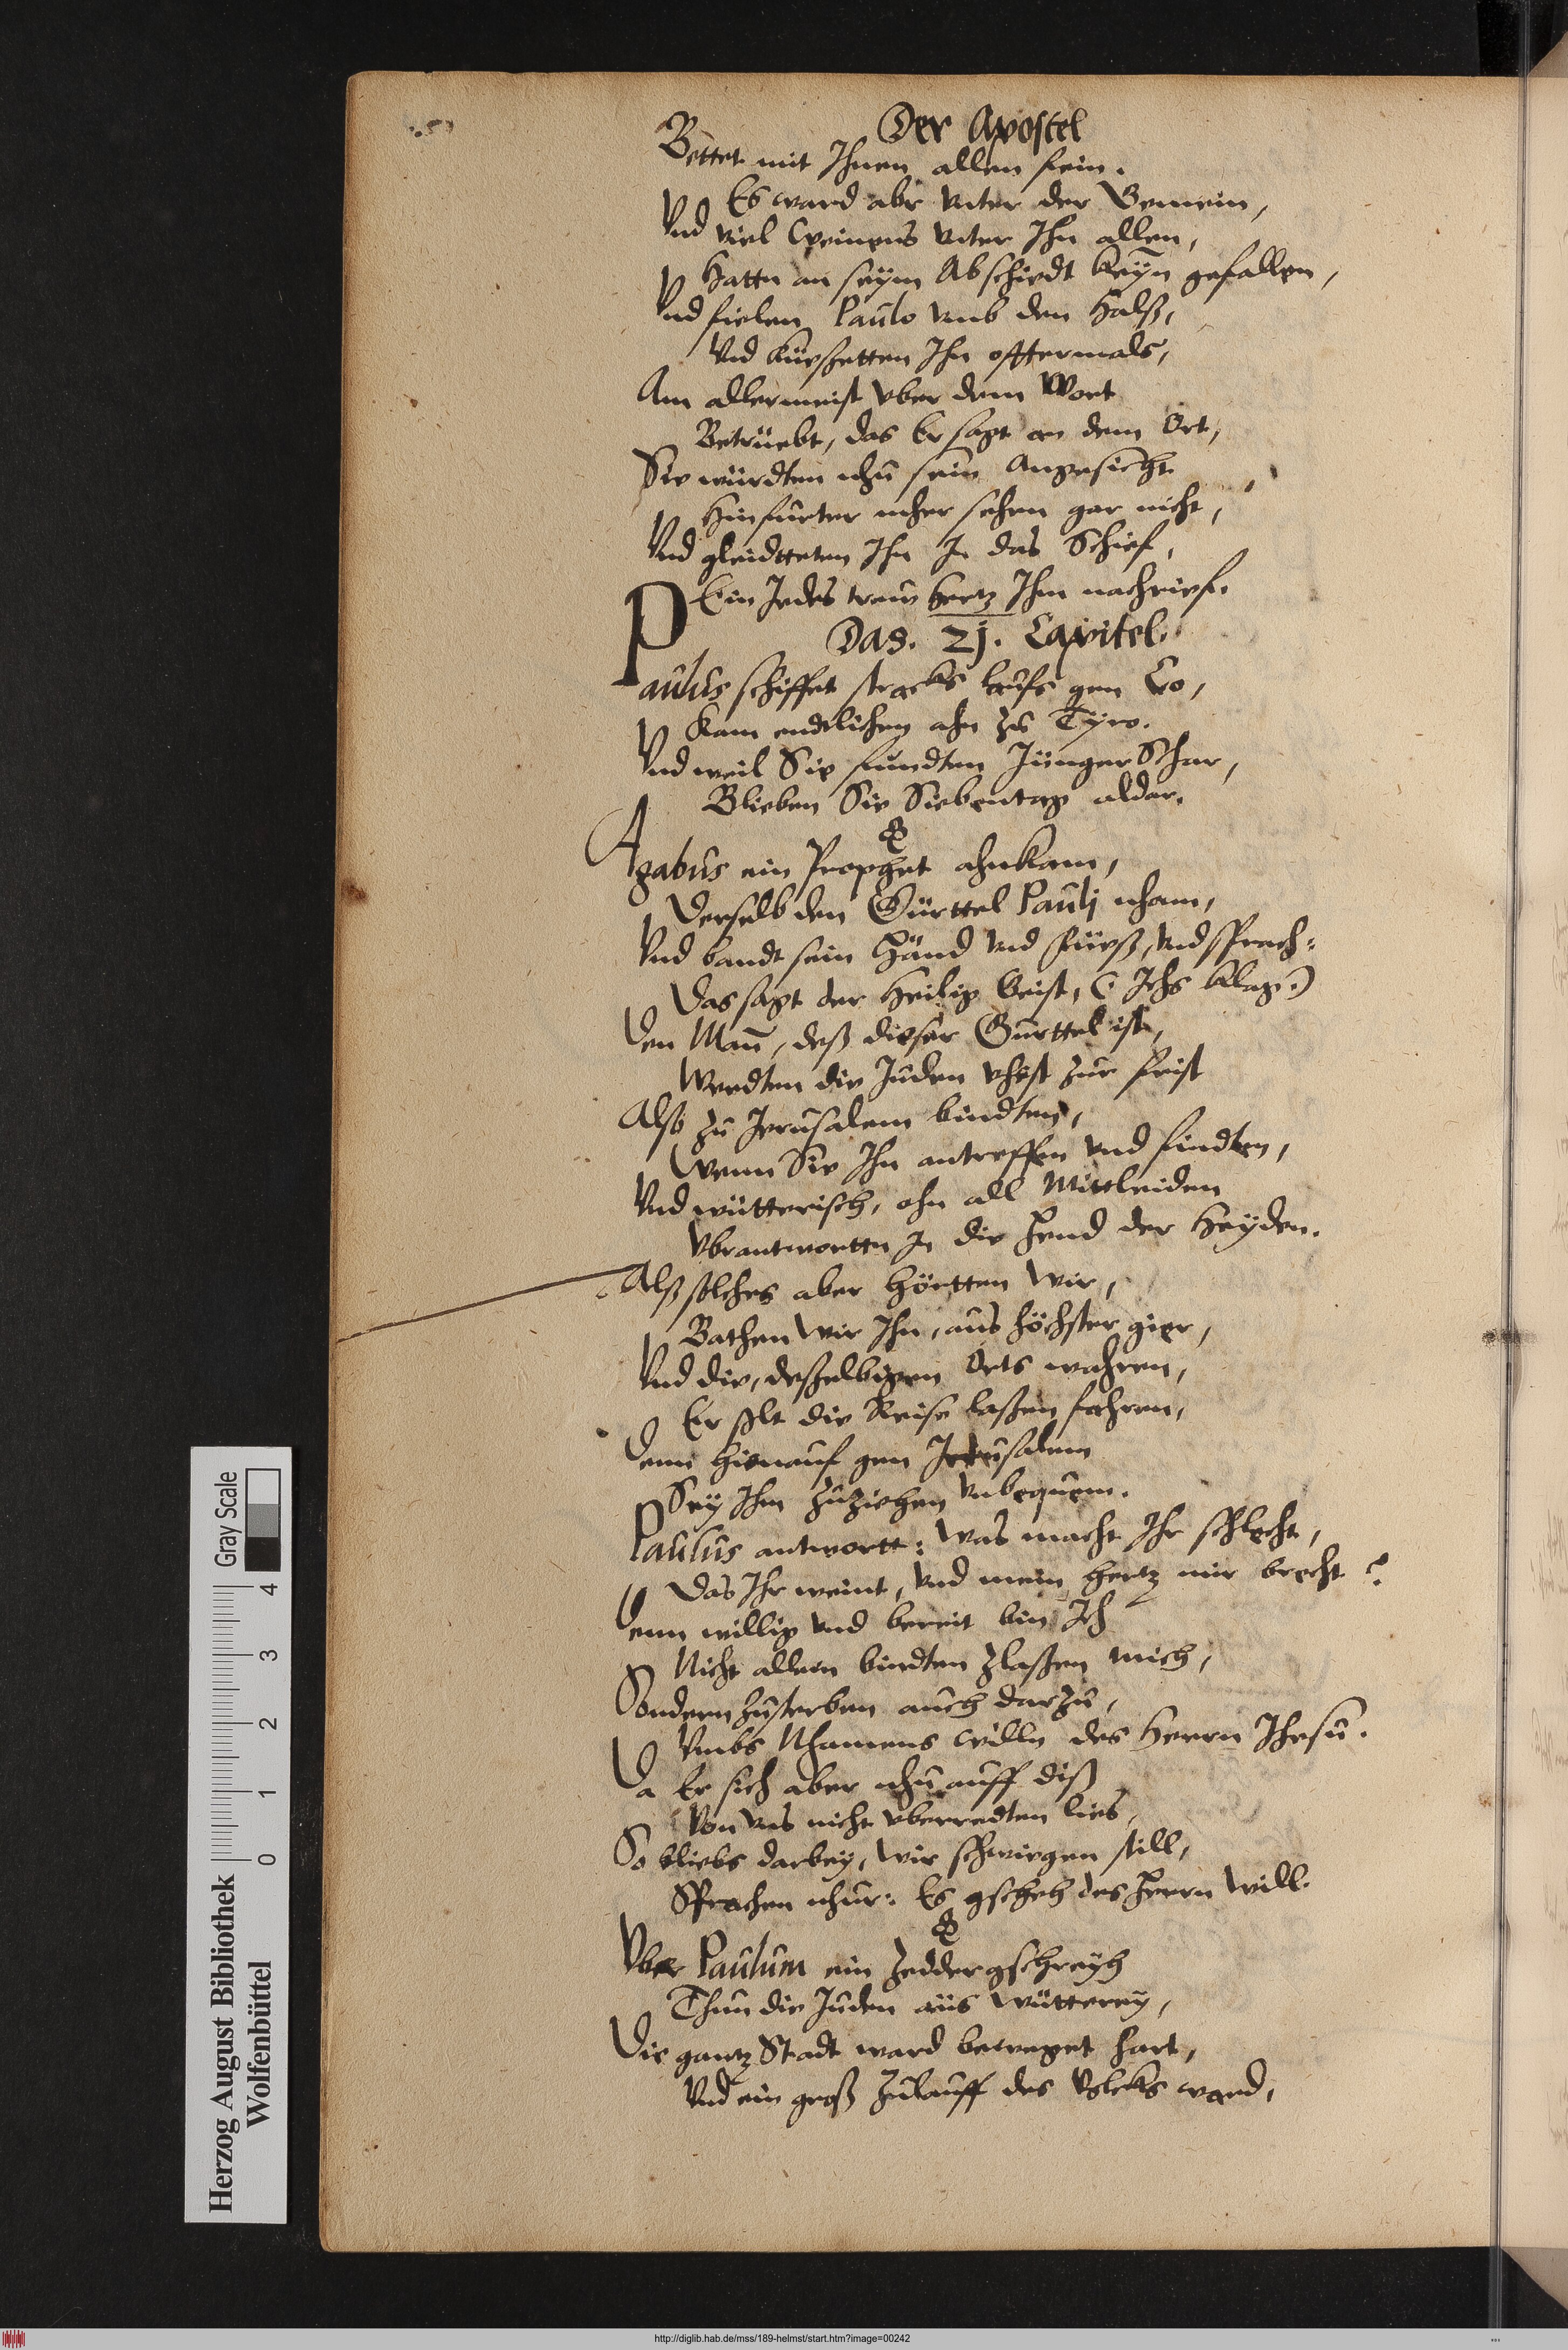 Der Apostel
Bettet mit Ihnen allen fein.
Es ward abr vnter der Gemein,
Vnd viel Weinens vnter Ihn allen,
Hattn an seÿm Abschiedt keÿn gefallen,
Vnd fielen Paulo vmb den Halß,
Vnd küeßetten Ihn offtermals,
Am allermeist vber dem Wort
Betrüebt, das Er sagt an dem Ort,
Sie würdten nhu sein Angesicht
Hinfurter mher sehen gar nicht,
Vnd gleidtteten Ihn In das Schief,
Ein Jedes trew Hertz Ihm nachrief.
Das. 21. Capitel.
Paulus schiffet stracks laufs gen Co,
Kam endtlichen ahn zu Tÿro.
Vnd weil Sie fundten Jünger Schar,
Blieben Sie Siebentag aldar.
Agabus ein Prophet ahnkam,
Derselb den Gürttel Pauli nham,
Vnd bandt sein Händ vnd füeß, vnd sprach:
Das sagt der Heilig Geist, (: Ichs klag:)
Den Man̄, deß dieser Gürttel ist,
Werdten die Juden vhest zur frist
Also zu Jerusalem bindten,
Wenn Sie Ihn antreffen vnd findten,
Vnd wütterisch, ohn all Mittleiden
Vbrantwortten In die Hend der Heÿden.
Alß solches aber hörtten Wir,
Bathen Wir Ihn, aus höchster gier,
Vnd die, deßelbigen Orts wahren,
Er solt die Reise laßen fahren,
Denn hienauf gen Jerusalem
Seÿ Ihm zuziehen vnbequem.
Paulus antwortt: Was macht Ihr schlecht,
Das Ihr weint, vnd mein Hertz mir brecht?
Denn willig vnd bereit bin Ich
Nicht allein bindten zlaßen mich,
Sondern zusterben auch darzu,
Vmbs Nhamens willn des Herrn Jhesu.
Da Er sich aber nhu auff diß
Von vns nicht vberredten lies,
So bliebs darbey, Wir schwiegen still,
Sprachen nhur: Es gscheh des Herrn Will.
Vber Paulum ein Zeddergschreÿh
Thun die Juden aus Wütterey,
Die gantz Stadt ward beweget hart,
Vnd ein groß Zulauff des Volcks ward,
Herzog August Bibliothek
Wolfenbüttel
Gray Scale
0 1 2 3 4
http://diglib.hab.de/mss/189-helmst/start.htm?image=00242